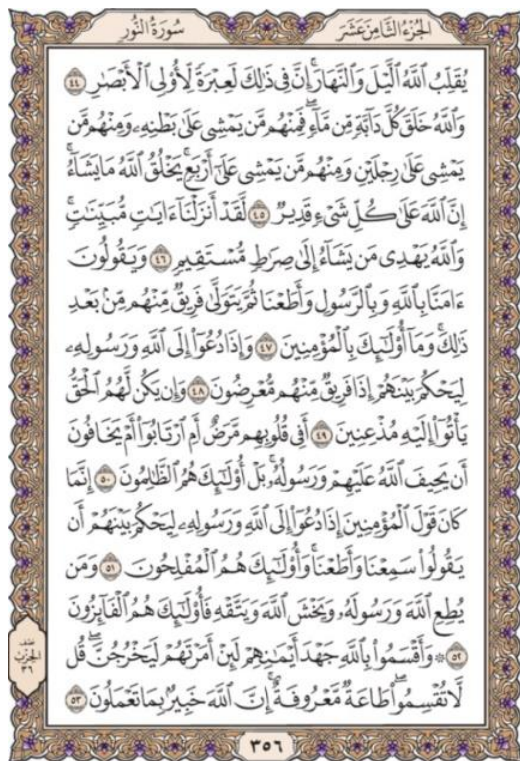 الجزء الثامن عشر
سورة النور
يُقَلِّبُ ٱللَّهُ ٱلَّيْلَ وَٱلنَّهَارَۚ إِنَّ فِى ذَٰلِكَ لَعِبْرَةً لِّأُو۟لِى ٱلْأَبْصَٰرِ ٤٤
وَٱللَّهُ خَلَقَ كُلَّ دَآبَّةٍ مِّن مَّآءٍۖ فَمِنْهُم مَّن يَمْشِى عَلَىٰ بَطْنِهِۦ وَمِنْهُم مَّن
يَمْشِى عَلَىٰ رِجْلَيْنِ وَمِنْهُم مَّن يَمْشِى عَلَىٰٓ أَرْبَعٍۚ يَخْلُقُ ٱللَّهُ مَا يَشَآءُۚ
إِنَّ ٱللَّهَ عَلَىٰ كُلِّ شَىْءٍ قَدِيرٌ ٤٥ لَّقَدْ أَنزَلْنَآ ءَايَٰتٍ مُّبَيِّنَٰتٍۚ
وَٱللَّهُ يَهْدِى مَن يَشَآءُ إِلَىٰ صِرَٰطٍ مُّسْتَقِيمٍ ٤٦ وَيَقُولُونَ
ءَامَنَّا بِٱللَّهِ وَبِٱلرَّسُولِ وَأَطَعْنَا ثُمَّ يَتَوَلَّىٰ فَرِيقٌ مِّنْهُم مِّنۢ بَعْدِ
ذَٰلِكَۚ وَمَآ أُو۟لَٰٓئِكَ بِٱلْمُؤْمِنِينَ ٤٧ وَإِذَا دُعُوٓا۟ إِلَى ٱللَّهِ وَرَسُولِهِۦ
لِيَحْكُمَ بَيْنَهُمْ إِذَا فَرِيقٌ مِّنْهُم مُّعْرِضُونَ ٤٨ وَإِن يَكُن لَّهُمُ ٱلْحَقُّ
يَأْتُوٓا۟ إِلَيْهِ مُذْعِنِينَ ٤٩ أَفِى قُلُوبِهِم مَّرَضٌ أَمِ ٱرْتَابُوٓا۟ أَمْ يَخَافُونَ
أَن يَحِيفَ ٱللَّهُ عَلَيْهِمْ وَرَسُولُهُۥۚ بَلْ أُو۟لَٰٓئِكَ هُمُ ٱلظَّٰلِمُونَ ٥٠ إِنَّمَا
كَانَ قَوْلَ ٱلْمُؤْمِنِينَ إِذَا دُعُوٓا۟ إِلَى ٱللَّهِ وَرَسُولِهِۦ لِيَحْكُمَ بَيْنَهُمْ أَن
يَقُولُوا۟ سَمِعْنَا وَأَطَعْنَاۚ وَأُو۟لَٰٓئِكَ هُمُ ٱلْمُفْلِحُونَ ٥١ وَمَن
يُطِعِ ٱللَّهَ وَرَسُولَهُۥ وَيَخْشَ ٱللَّهَ وَيَتَّقْهِ فَأُو۟لَٰٓئِكَ هُمُ ٱلْفَآئِزُونَ
٥٢ ۞ وَأَقْسَمُوا۟ بِٱللَّهِ جَهْدَ أَيْمَٰنِهِمْ لَئِنْ أَمَرْتَهُمْ لَيَخْرُجُنَّۖ قُل
لَّا تُقْسِمُوا۟ۖ طَاعَةٌ مَّعْرُوفَةٌۚ إِنَّ ٱللَّهَ خَبِيرٌۢ بِمَا تَعْمَلُونَ ٥٣
نصف
الحزب
٣٦
٣٥٦